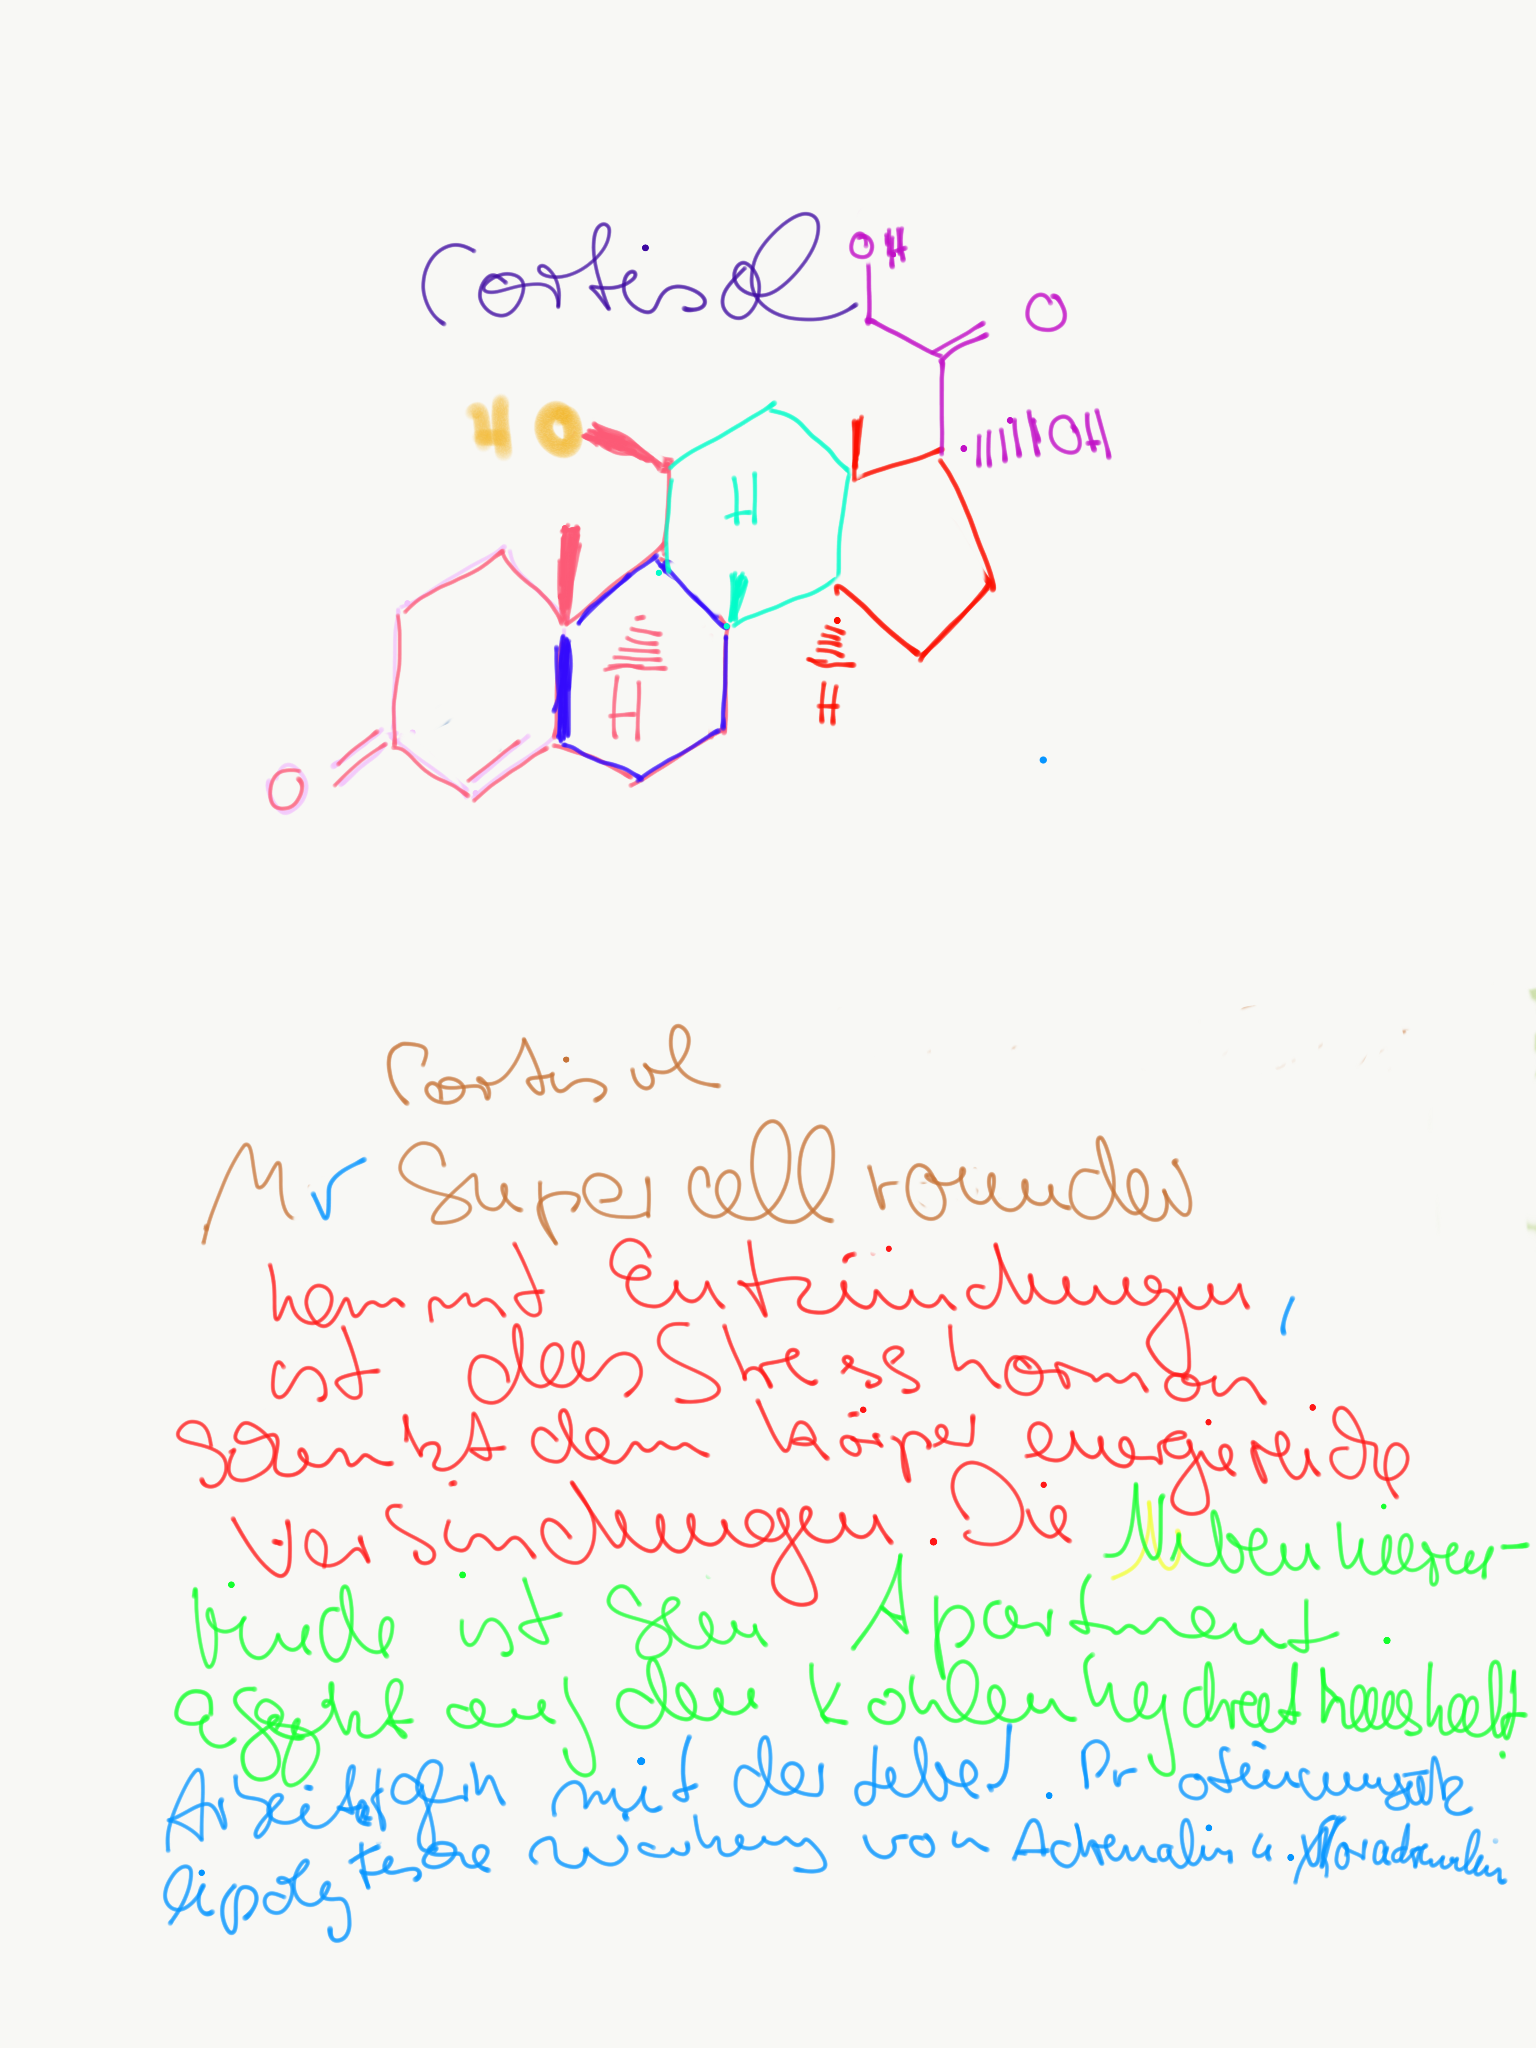 Cortisol
OH
O
HO
OH
H
H
H
O
Cortisol
Mr Super cell rounder
hemmt Entzündungen,
ist das Stresshormon
schenkt dem Körper energiereiche
Verbindungen. Die Nebennieren-
rinde ist sein Apartment.
auf den Kohlenhydrathaushalt
mit der Leber. Proteinumsatz
Wirkung von Adrenalin u. Noradrenalin